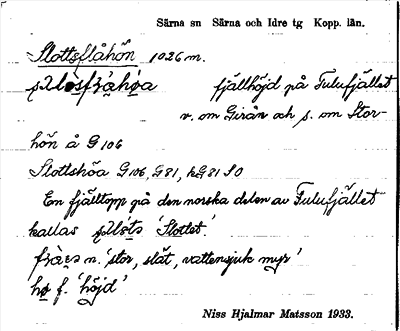 Särna sn Särna och Idre tg Kopp. län.
Slottsflåhön 1026 m.
fjällhöjd på Fulufjället
v. om Girån och s. om Stor-
hön å G 106
Slottshöa G 106, G 81, kG 81 SO
En fjälltopp på den norska delen av Fulufjället
kallas 'Slottet'.
n. 'stor, slät, vattensjuk myr'
hø f. 'höjd'
Niss Hjalmar Matsson 1933.